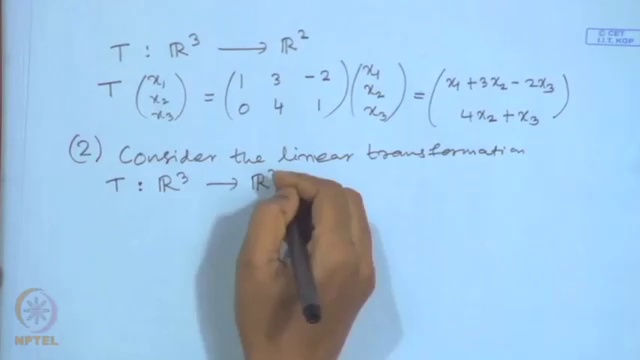 © CET
I.I.T. KGP
T : ℝ³ ⟶ ℝ²
T (x₁ x₂ x₃) = (1 3 -2 0 4 1) (x₁ x₂ x₃) = (x₁ + 3x₂ - 2x₃ 4x₂ + x₃)
(2) Consider the linear transformation
T : ℝ³ ⟶ ℝ
NPTEL